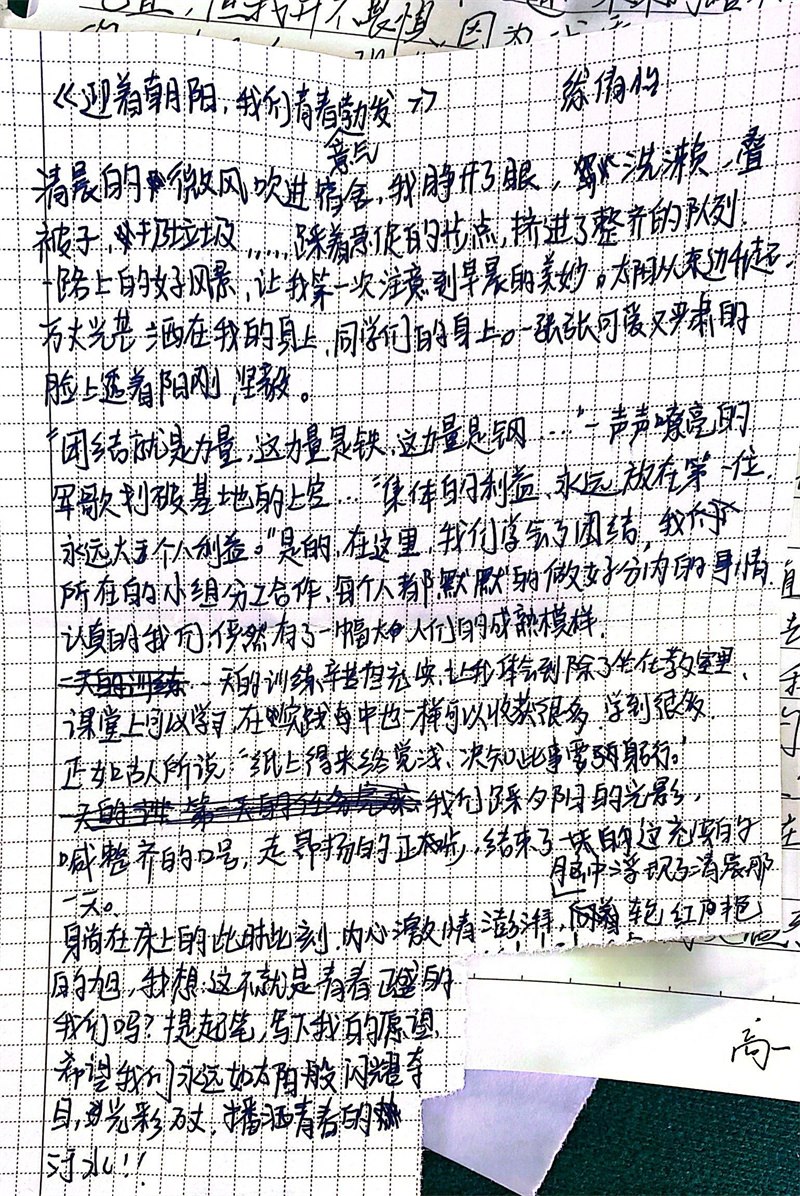 也罢,但我并不畏惧,因为
《迎着朝阳,我们青春勃发》
意气
清晨的微风吹进宿舍,我睁开了眼,洗漱、叠
被子、扔垃圾……踩着急促的步点,挤进了整齐的队列.
一路上的好风景,让我第一次注意到早晨的美妙。太阳从东边升起.
万丈光芒洒在我的身上,同学们的身上。一张张可爱又严肃的
脸上透着阳刚,坚毅。
“团结就是力量,这力量是铁,这力量是钢……”一声声嘹亮的
军歌划破基地的上空…“集体的利益、永远放在第一位,
永远大于个人利益。”是的,在这里,我们学会了团结,我们
所在的小组分工合作,每个人都默默的做好分内的事情.
认真的我们,俨然有了一幅大人们的成熟模样.
一天的训练 一天的训练辛苦但充实,让我体会到除了坐在教室里、
课堂上可以学习,在实践当中也一样可以收获很多,学到很多.
正如古人所说“纸上得来终觉浅、决知此事要躬行。”
我们踩夕阳的光影,
喊整齐的口号,走昂扬的正步,结束了这充实的
一天。
脑中浮现了清晨那
身躺在床上的此时此刻,内心激情澎湃,向着车包红艳艳
的旭,我想:这不就是青春正盛的
我们吗?提起笔,写下我的愿望,
希望我们永远如太阳般闪耀夺
目,光彩万丈,播洒青春的
汗水!!
高一